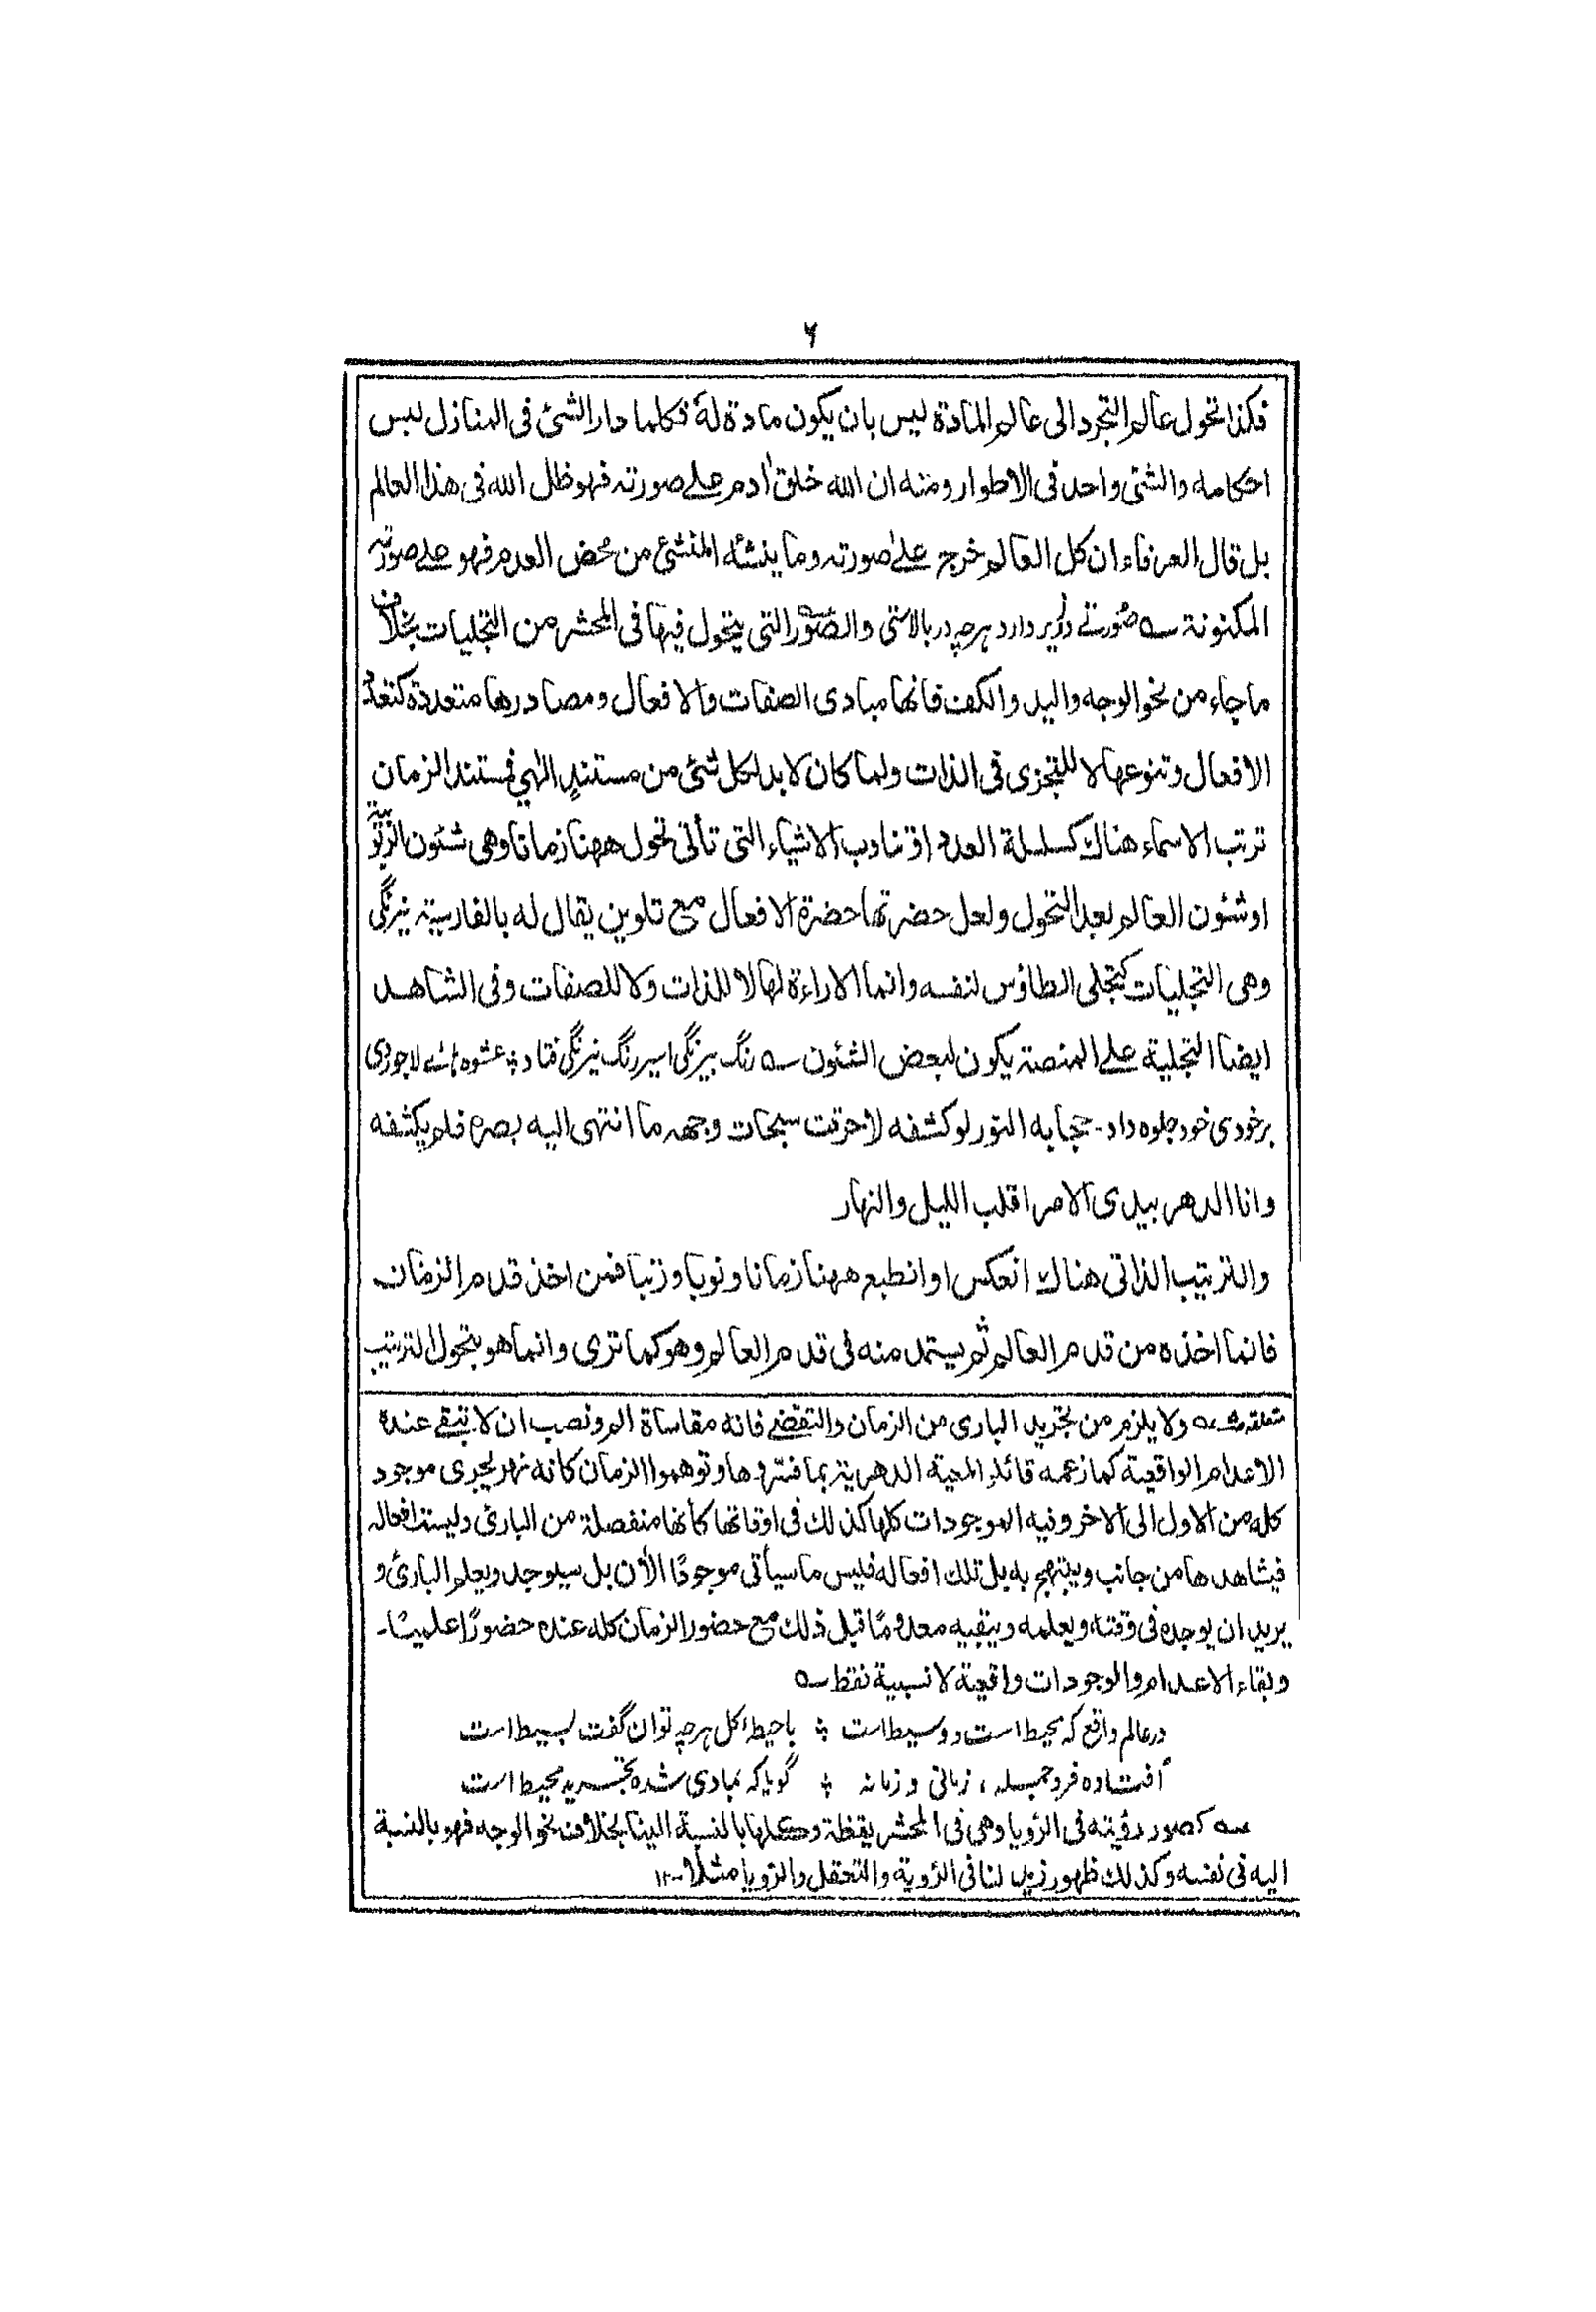 ٦
فكذا تحول عالم التجرد الى عالم المادة ليس بان يكون مادة له فكلما دار الشئ فى المنازل لبس
احكامه والشئ واحد فى الاطوار ومنه ان الله خلق اٰدم علے صورته فهو ظل الله فى هذا العالم
بل قال العرفاء ان كل العالم خرج علے صورته وما ينشئه المنشئ من محض العدم فهو علے صورته
المكنونة ؎ صورتے در زیر دارد ہرچہ در بالاستی والصور التى يتحول فيها فى المحشر من التجليات بخلاف
ما جاء من نحو الوجه واليد والكف فانها مبادى الصفات والافعال ومصادرها متعددة كتعدد
الافعال وتنوعها لا للتجزى فى الذات ولما كان لا بد لكل شئ من مستند الٰهي فمستند الزمان
ترتب الاسماء هناك كسلسلة العدد او تناوب الاشياء التى تأتى تحول ههنا زمانا وهى شئون الربوبية
او شئون العالم بعد التحول ولعل حضرتها حضرة الافعال مع تلوين يقال له بالفارسية نيرنگى
وهى التجليات كتجلى الطاؤس لنفسه وانما الاراءة لها لا للذات ولا للصفات وفى الشاهد
ايضا التجلية علے المنصة يكون لبعض الشئون ؎ رنگ بیرنگی اسیر رنگ نیرنگی فتاد ؛ عشوہ ہائے لاجوردی
بر خودی خود جلوہ داد۔ حجابه النور لو كشفه لاحرقت سبحات وجهه ما انتهى اليه بصره فلم يكشفه
وانا الدهر بيدى الامر اقلب الليل والنهار
والترتيب الذاتى هناك انعكس او انطبع ههنا زمانا ونوبا ورتبا فمن اخذ قدم الزمان
فانما اخذه من قدم العالم ثم يستمد منه فى قدم العالم وهو كما ترى وانما هو بتحول الترتيب
متعلقه ؎ ولا يلزم من تجريد البارى من الزمان والتقضے فانه مقاساة الم ونصب ان لا تبقے عنده
الاعدام الواقعية كما زعمه قائلو المعية الدهرية بما فسروها وتوهموا الزمان كانه نهر يجرى موجود
كله من الاول الى الاخر وفيه الموجودات كلها كذلك فى اوقاتها كأنها منفصلة من البارئ وليست افعاله
فيشاهدها من جانب ويبتهج به بل تلك افعاله فليس ما سيأتى موجودًا الأن بل سيوجد ويعلم البارئ و
يريد ان يوجده فى وقته ويعلمه ويبقيه معدومًا قبل ذلك مع حضور الزمان كله عنده حضورًا علميًا۔
وبقاء الاعدام والوجودات واقعية لا نسبية فقط ؎
در عالم واقع کہ محیط است و وسیط است ؛ باحیطۂ کل ہرچہ توان گفت بسیط است
افتادہ فرو جملہ، زمانی و زمانہ ؛ گویا کہ بمادی شدہ تجرید محیط است
؎ كصور رؤيته فى الرؤيا وهى فى المحشر يقظة وعملها بالنسبة الينا بخلافه نحو الوجه فهو بالنسبة
اليه فى نفسه وكذلك ظهور زيد لنا فى الرؤية والتعقل والرؤيا مثلًا ١٢